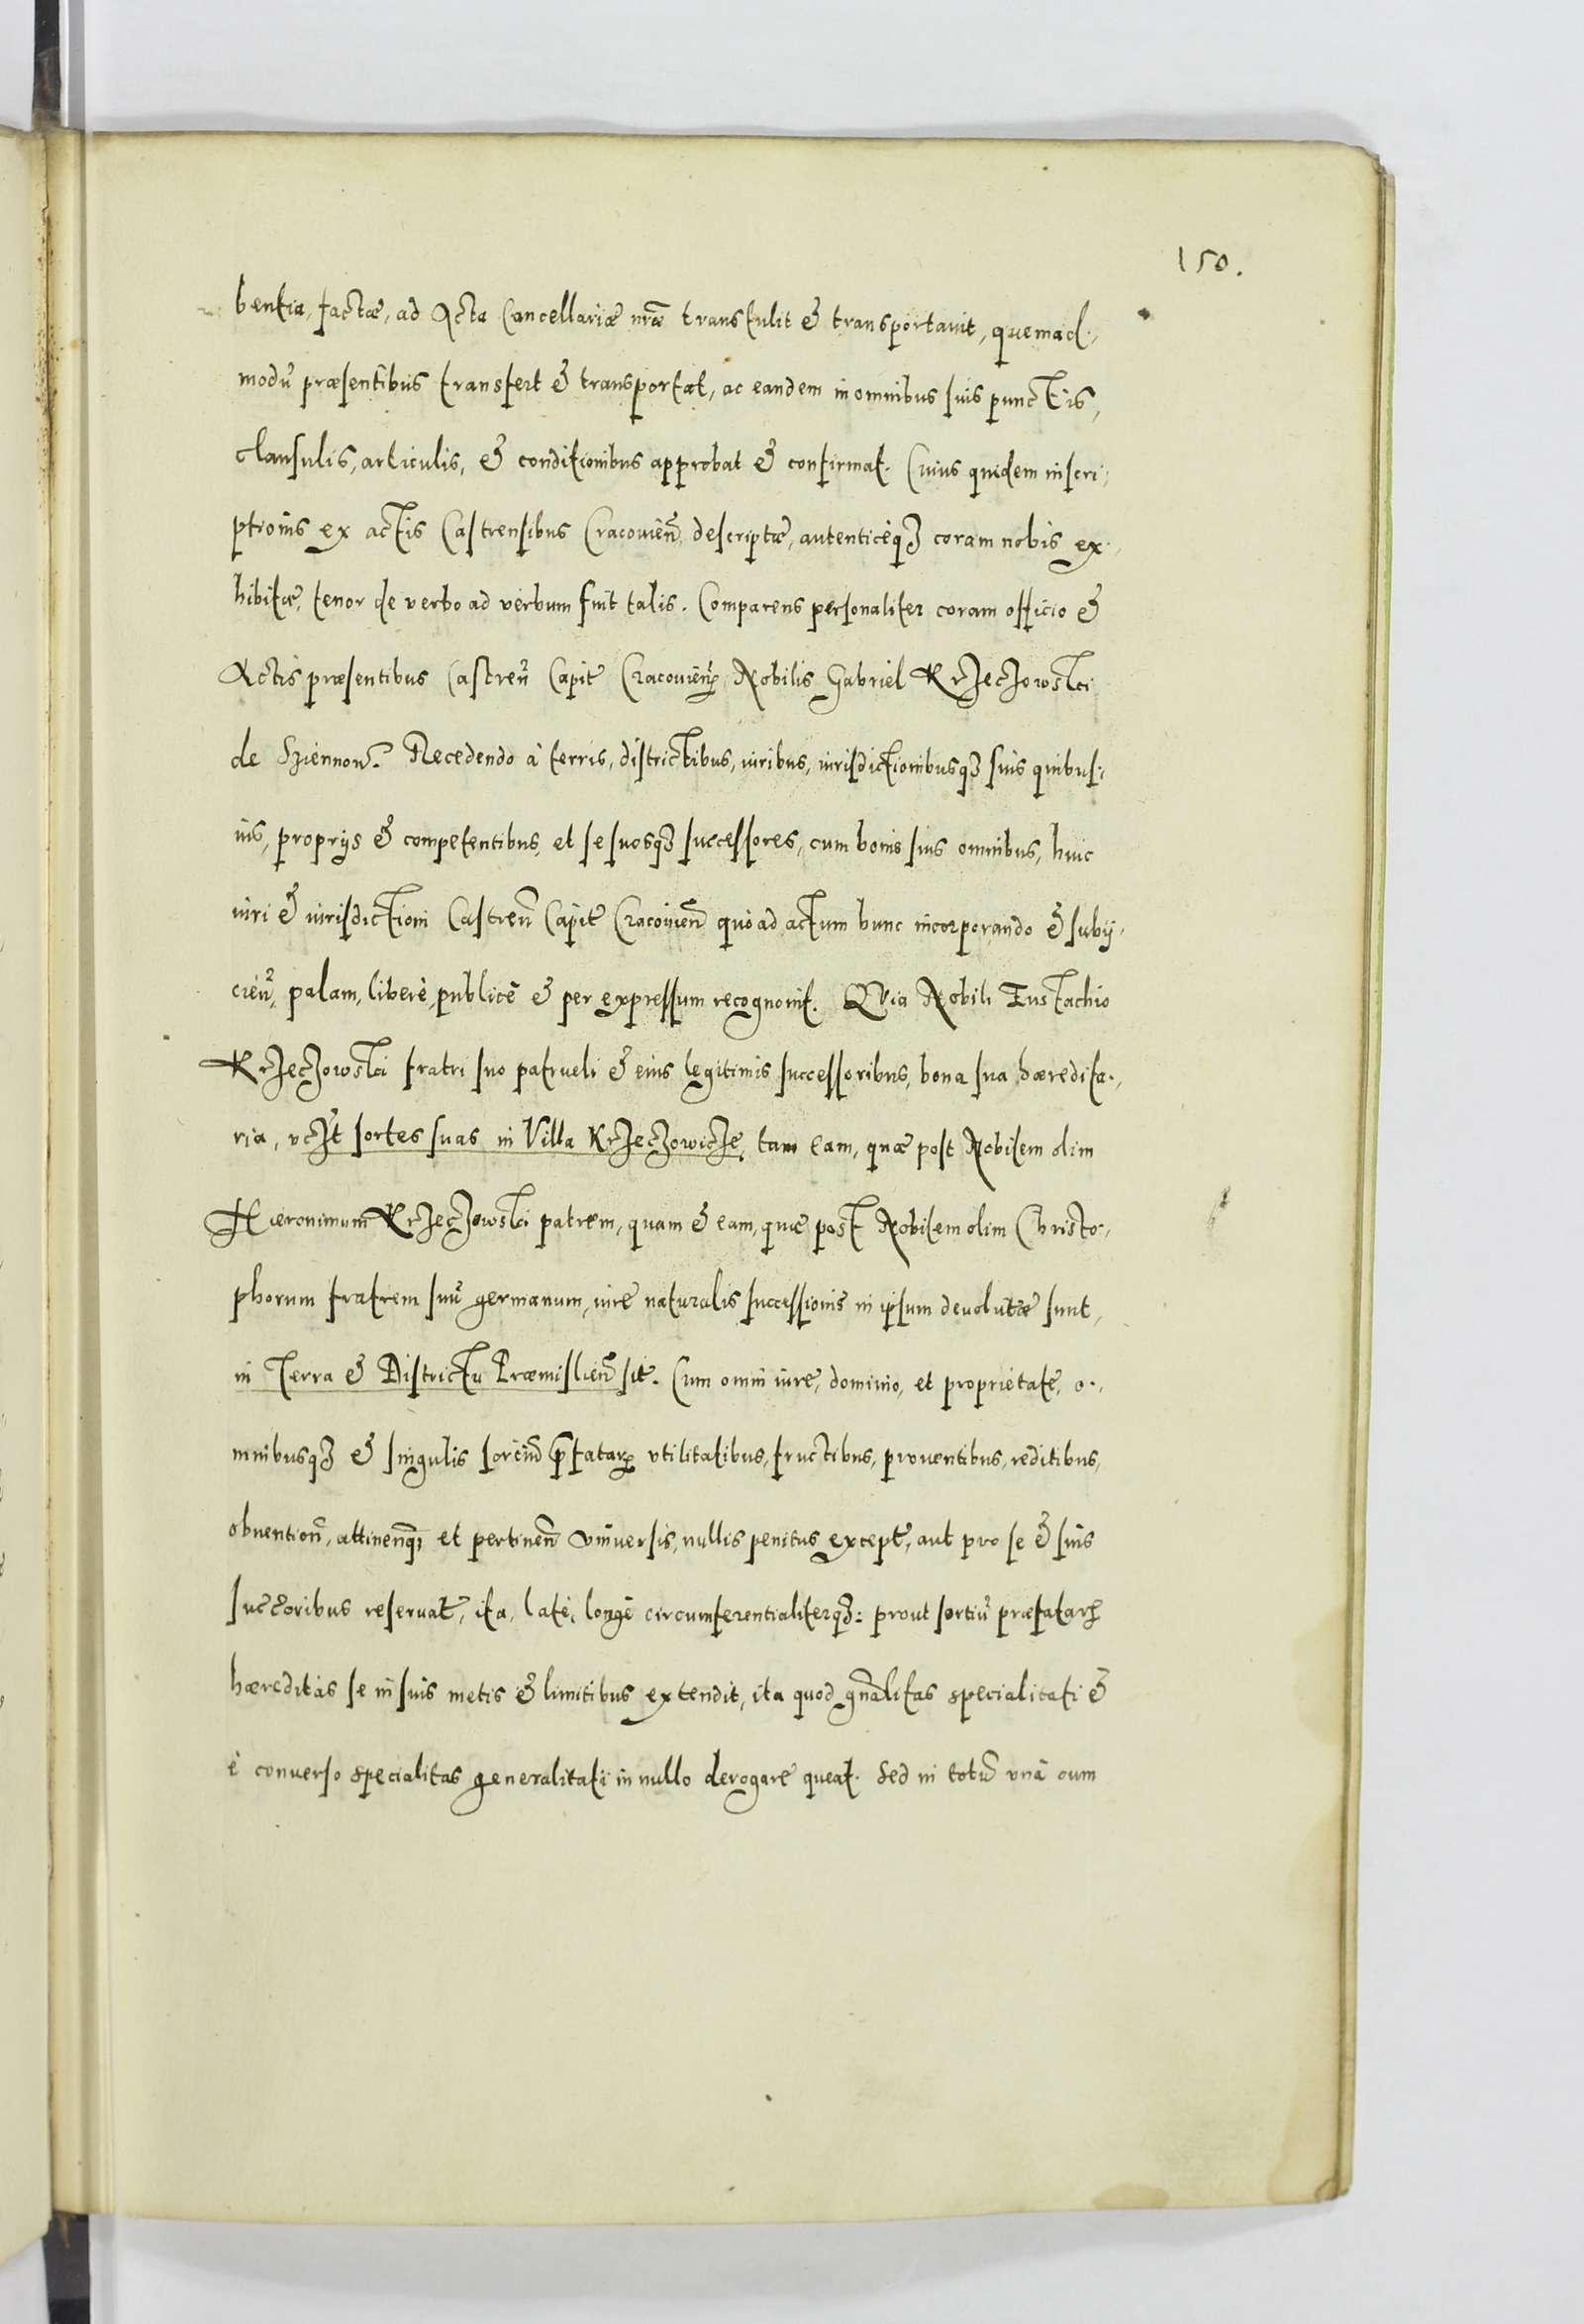 150.
bentia, factæ, ad Acta Cancellariæ nr̃æ transtulit & transportauit, quemad-
modũ præsentibus transfert & transportat, ac eandem in omnibus suis punctis,
clausulis, articulis, & conditionibus approbat & confirmat. Cuius quidem inscri-
ptionis ex actis Castrensibus Cracouieñ descriptæ, autenticèq3 coram nobis ex-
hibitæ, tenor de verbo ad verbum fuit talis. Comparens personaliter coram officio &
Actis præsentibus Castreñ Capit Cracouieñ Nobilis Gabriel Krzeczowski
de Sziennow. Recedendo à terris, districtibus, iuribus, iurisdictionibusq3 suis quibus-
uis, proprijs & competentibus, et se suosq3 successores, cum bonis suis omnibus, huic
iuri & iurisdictioni Castreñ Capit Cracouieñ quo ad actum hunc incorporando & subij-
cieñ, palam, liberè, publicè & per expressum recognouit. QVia Nobili Eustachio
Krzeczowski fratri suo patrueli & eius legitimis successoribus, bona sua hæredita-
ria, vczt sortes suas in Villa Krzeczowicze, tam eam, quæ post Nobilem olim
Hieronimum Krzeczowski patrem, quam & eam, quæ post Nobilem olim Christo-
phorum fratrem suũ germanum, iure naturalis successionis in ipsum deuolutæ sunt,
in Terra & Districtu Præmislieñ sit. Cum omni iure, dominio, et proprietate, o-
mnibusq3 & singulis sortiũ p̃fatarꝝ vtilitatibus, fructibus, prouentibus, reditibus,
obuentioñ, attineñq3 et pertineñ vniuersis, nullis penitus except, aut pro se & suis
succ̃oribus reseruat, ita, latè, longè circumferentialiterq3: prout sortiũ præfatarꝝ
hæreditas se in suis metis & limitibus extendit, ita quod gñalitas specialitati &
è conuerso specialitas generalitati in nullo derogare queat. Sed in totũ vnà cum